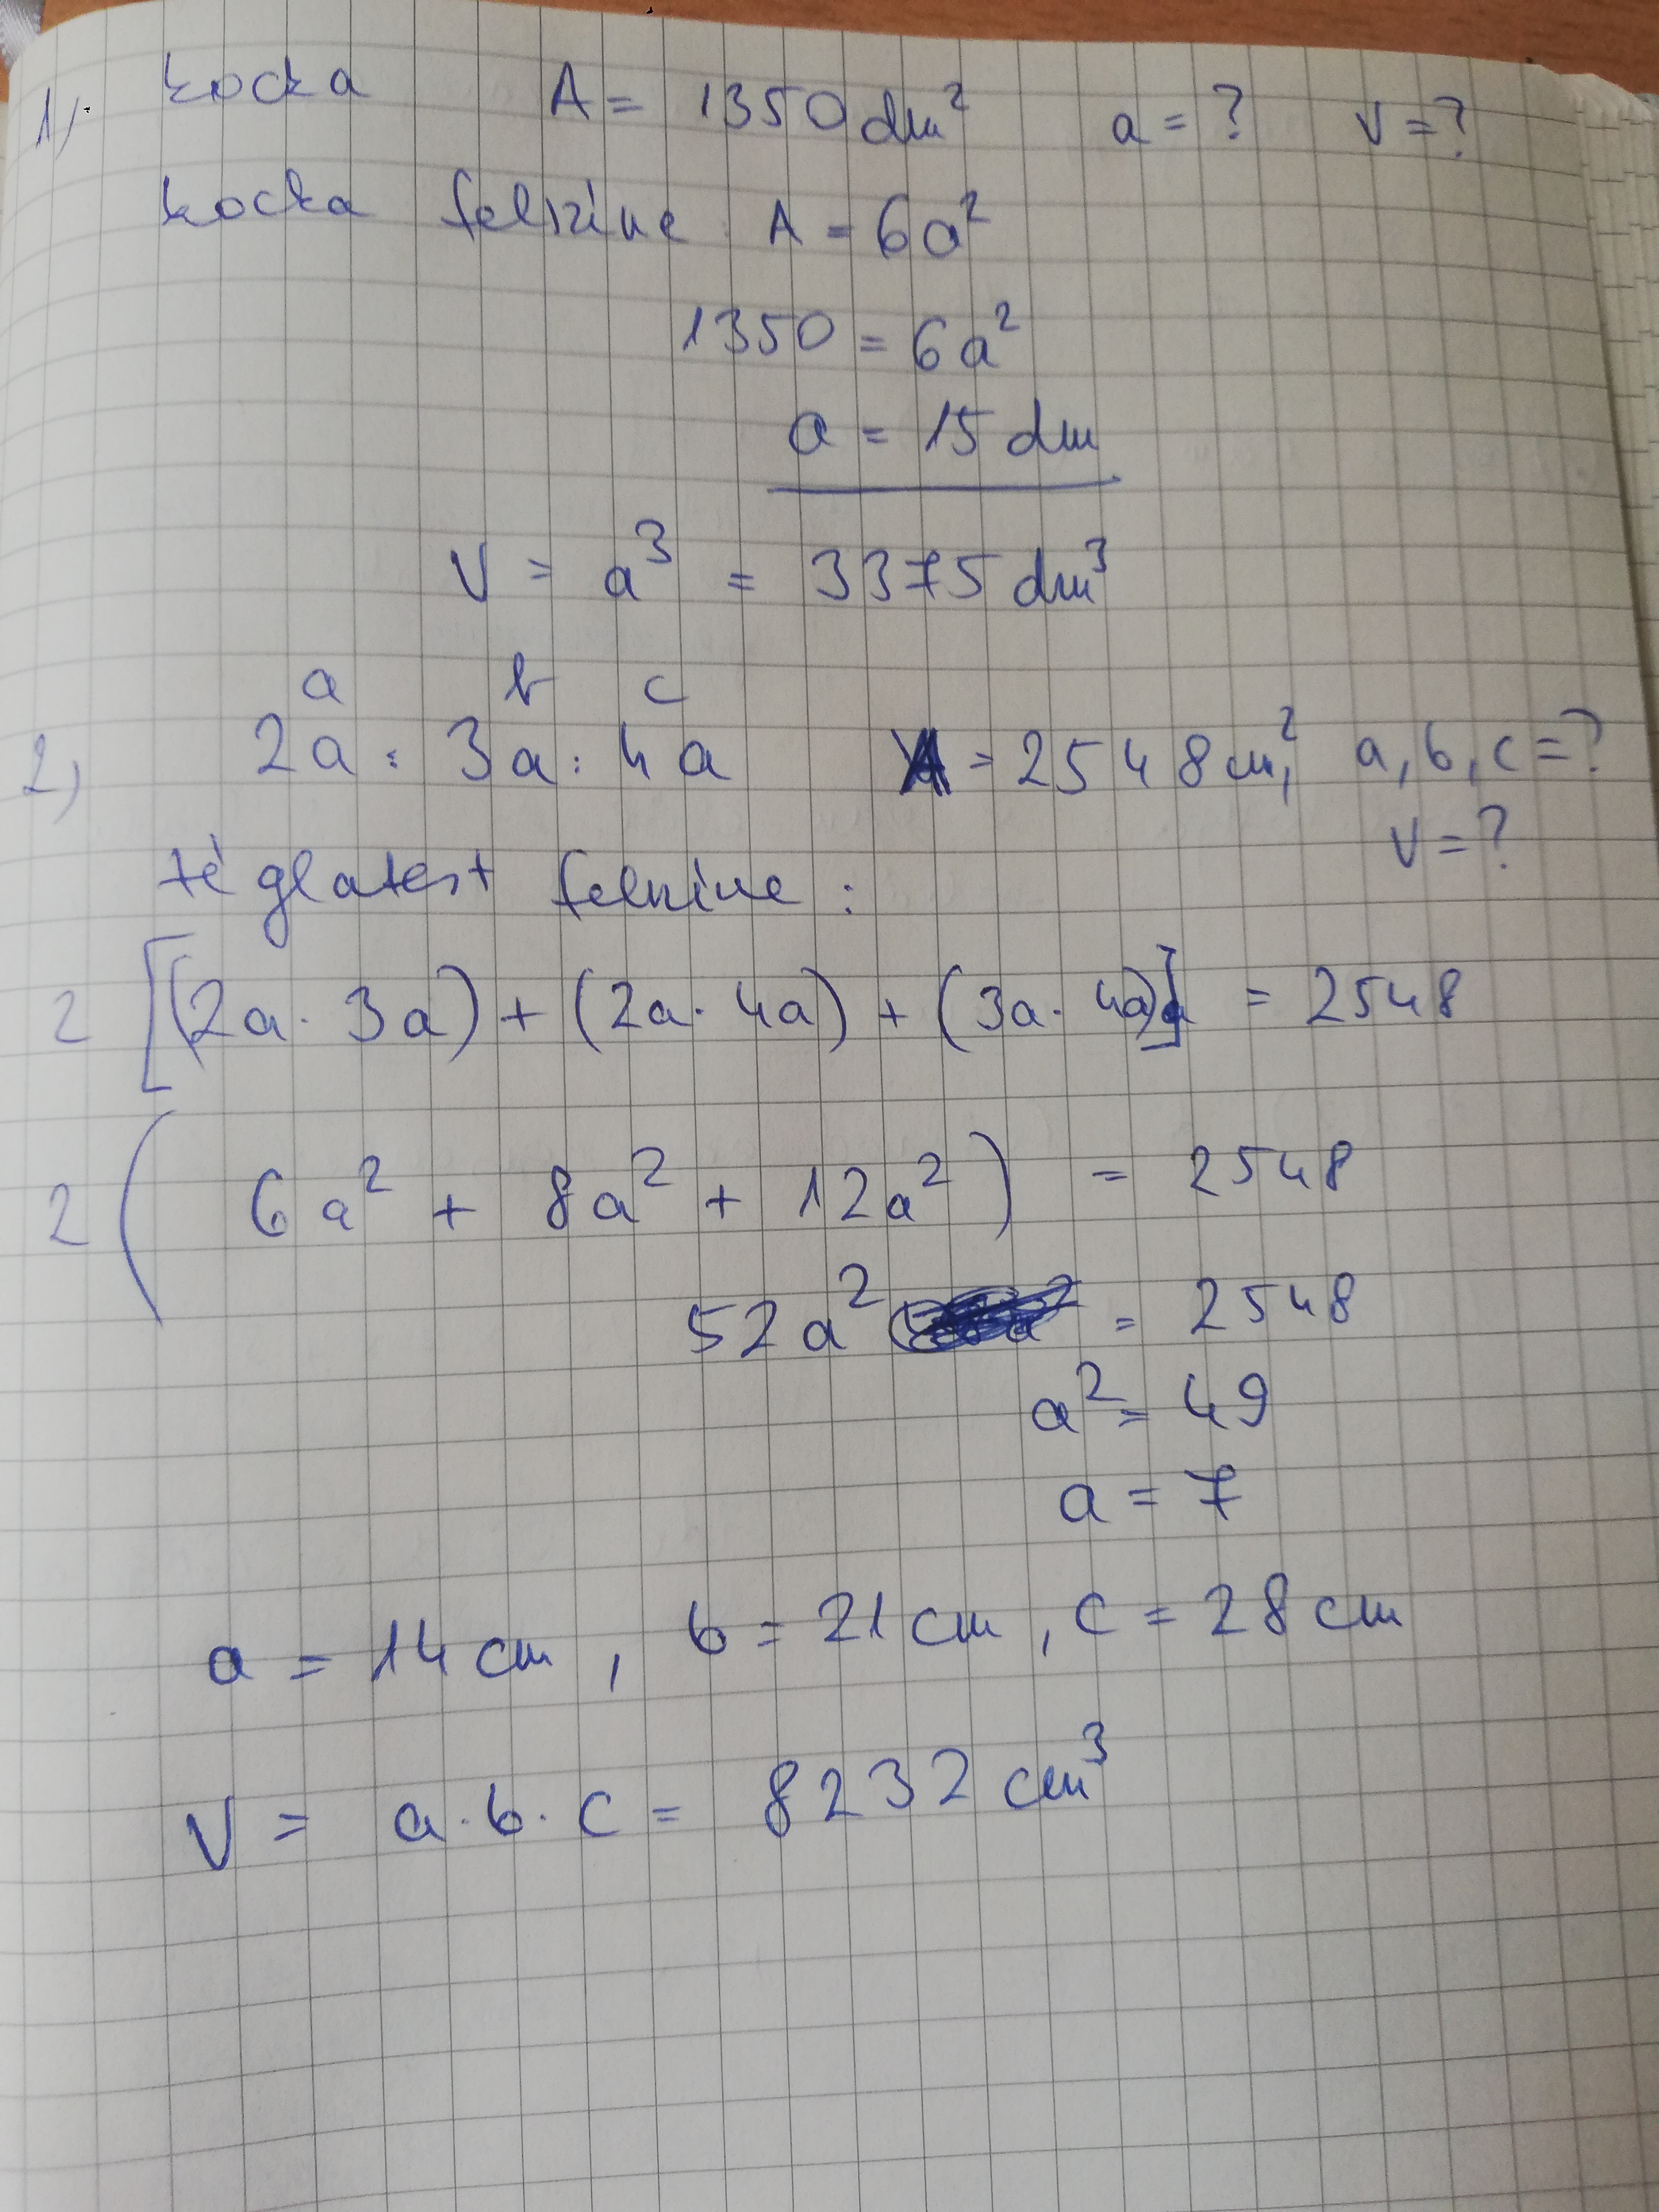 1, kocka A = 1350 dm² a = ? V = ?
kocka felszíne A = 6a²
1350 = 6a²
a = 15 dm
V = a³ = 3375 dm³
a b c
2, 2a : 3a : 4a A = 2548 cm², a, b, c = ?
V = ?
téglatest felszíne :
2 [(2a · 3a) + (2a · 4a) + (3a · 4a)] = 2548
2 ( 6a² + 8a² + 12a² ) = 2548
52a² = 2548
a² = 49
a = 7
a = 14 cm , b = 21 cm , c = 28 cm
V = a · b · c = 8232 cm³